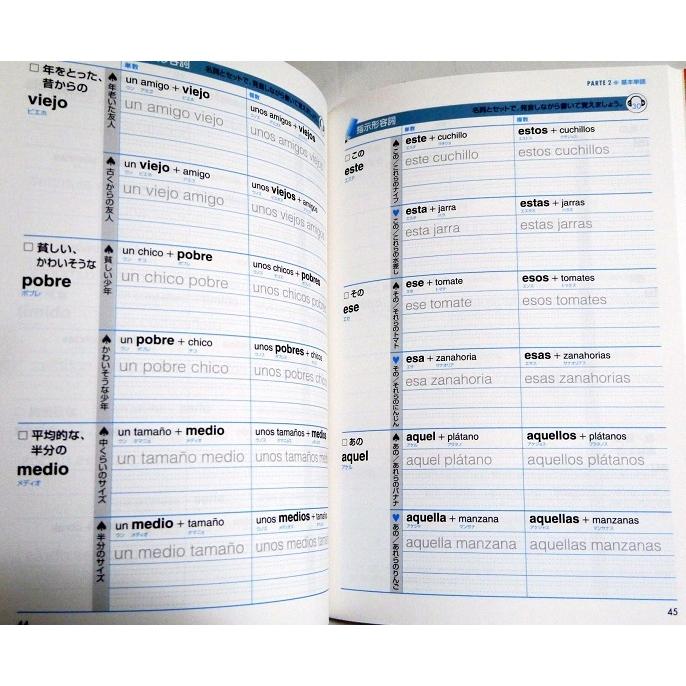 形容詞
名詞とセットで、発音しながら書いて覚えましょう。
単数
複数
□ 年をとった、
昔からの
viejo
ビエホ
♠ 年老いた友人
un amigo + viejo
ウン アミーゴ ビエホ
un amigo viejo
unos amigos + viejos
unos amigos viejos
♠ 古くからの友人
un viejo + amigo
ウン ビエホ アミーゴ
un viejo amigo
unos viejos + amigos
unos viejos amigos
□ 貧しい、
かわいそうな
pobre
ポブレ
♠ 貧しい少年
un chico + pobre
ウン チコ ポブレ
un chico pobre
unos chicos + pobres
unos chicos pobres
♠ かわいそうな少年
un pobre + chico
ウン ポブレ チコ
un pobre chico
unos pobres + chicos
unos pobres chicos
□ 平均的な、
半分の
medio
メディオ
♠ 中くらいのサイズ
un tamaño + medio
ウン タマニョ メディオ
un tamaño medio
unos tamaños + medios
unos tamaños medios
♠ 半分のサイズ
un medio + tamaño
ウン メディオ タマニョ
un medio tamaño
unos medios + tamaños
unos medios tamaños
44
PARTE 2 ● 基本単語
名詞とセットで、発音しながら書いて覚えましょう。
30
指示形容詞
単数
複数
□ この
este
エステ
♠ この/これらのナイフ
este + cuchillo
este cuchillo
estos + cuchillos
estos cuchillos
♥ この/これらの水差し
esta + jarra
esta jarra
estas + jarras
estas jarras
□ その
ese
エセ
♠ その/それらのトマト
ese + tomate
ese tomate
esos + tomates
esos tomates
♥ その/それらのにんじん
esa + zanahoria
esa zanahoria
esas + zanahorias
esas zanahorias
□ あの
aquel
アケル
♠ あの/あれらのバナナ
aquel + plátano
aquel plátano
aquellos + plátanos
aquellos plátanos
♥ あの/あれらのりんご
aquella + manzana
aquella manzana
aquellas + manzanas
aquellas manzanas
45